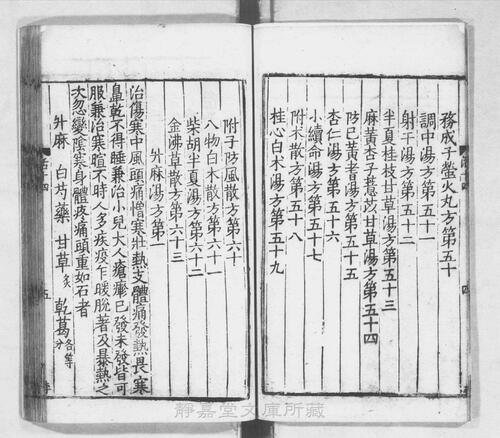 務成子螢火丸方第五十
調中湯方第五十一
射干湯方第五十二
半夏桂枝甘草湯方第五十三
麻黃杏子薏苡甘草湯方第五十四
防已黃耆湯方第五十五
杏仁湯方第五十六
小續命湯方第五十七
附术散方第五十八
桂心白术湯方第五十九
附子防風散方第六十
八物白术散方第六十一
柴胡半夏湯方第六十二
金沸草散方第六十三
升麻湯方第一
治傷寒中風頭痛憎寒壯熱支體痛發熱畏寒
鼻乾不得睡兼治小兒大人瘡癬已發未發皆可
服兼治寒暄不時人多疾疫乍暖脫著及暴熱之
次忽變陰寒身體疼痛頭重如石者
升麻 白芍藥 甘草炙 乾葛各等分
靜嘉堂文庫所藏